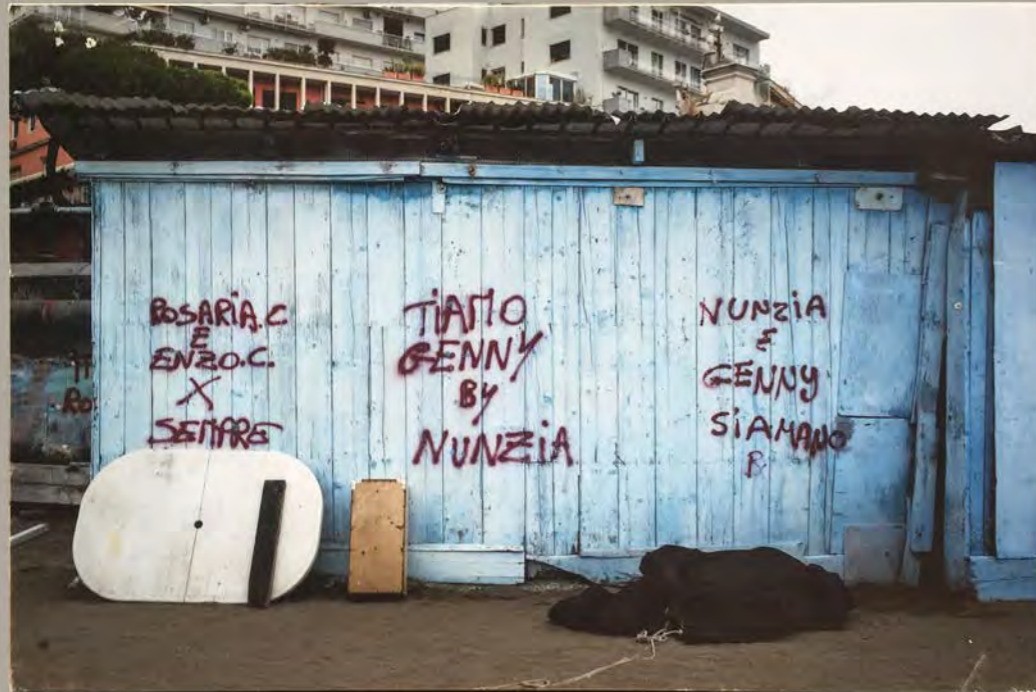 ROSARIA.C
E
ENZO.C.
X
SEMPRE
TIAMO
GENNY
BY
NUNZIA
NUNZIA
E
GENNY
SIAMANO